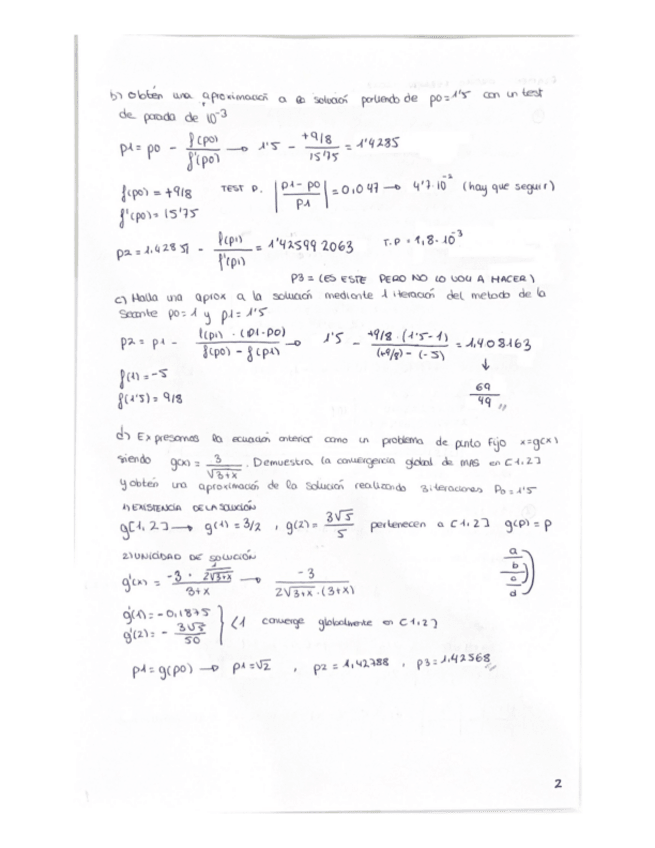 b) Obtén una aproximación a la solución partiendo de p0=1'5 con un test
de parada de 10^-3
p1 = p0 - f(p0)/f'(p0) → 1'5 - (+9/8)/15'75 = 1'4285
f(p0) = +9/8 TEST P. |(p1-p0)/p1| = 0,047 → 4'7·10^-2 (hay que seguir)
f'(p0) = 15'75
p2 = 1.42851 - f(p1)/f'(p1) = 1'42599 2063 T.P = 1,8·10^-3
P3 = (ES ESTE PERO NO LO VOY A HACER)
c) Halla una aprox a la solución mediante 1 iteración del metodo de la
Secante p0=1 y p1=1'5
p2 = p1 - f(p1)·(p1-p0)/(f(p0)-f(p1)) → 1'5 - +9/8·(1'5-1)/((+9/8)-(-5)) = 1,408163
↓
f(1) = -5
69/49 ,,
f(1'5) = 9/8
d) Expresamos la ecuación anterior como un problema de punto fijo x=g(x)
siendo g(x) = 3/√(3+x). Demuestra la convergencia global de MAS en [1,2]
y obtén una aproximación de la solución realizando 3 iteraciones P0=1'5
1) EXISTENCIA DE LA SOLUCIÓN
g[1,2] → g(1) = 3/2 , g(2) = 3√5/5 pertenecen a [1,2] g(p)=p
2) UNICIDAD DE SOLUCIÓN
a
b
c
d
g'(x) = (-3 · 1/(2√(3+x)))/(3+x) → -3/(2√(3+x)·(3+x))
g'(1) = -0,1875
g'(2) = - 3√5/50 } <1 converge globalmente en [1,2]
p1 = g(p0) → p1=√2 , p2 = 1,42788 , p3 = 1,42568,,
2